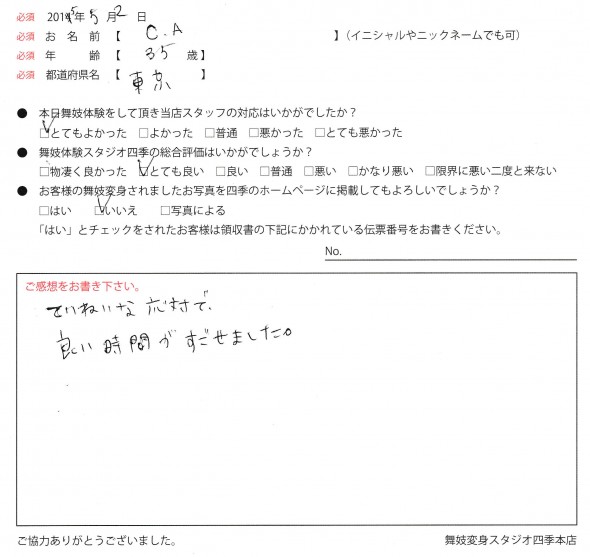 必須 2015年 5月 2日
必須 お名前【 C.A 】（イニシャルやニックネームでも可）
必須 年齢【 35 歳】
必須 都道府県名【 東京 】
● 本日舞妓体験をして頂き当店スタッフの対応はいかがでしたか？
☑とてもよかった □よかった □普通 □悪かった □とても悪かった
● 舞妓体験スタジオ四季の総合評価はいかがでしょうか？
□物凄く良かった ☑とても良い □良い □普通 □悪い □かなり悪い □限界に悪い二度と来ない
● お客様の舞妓変身されましたお写真を四季のホームページに掲載してもよろしいでしょうか？
□はい ☑いいえ □写真による
「はい」とチェックをされたお客様は領収書の下記にかかれている伝票番号をお書きください。
No.
ご感想をお書き下さい。
ていねいな応対で、
良い時間がすごせました。
ご協力ありがとうございました。 舞妓変身スタジオ四季本店